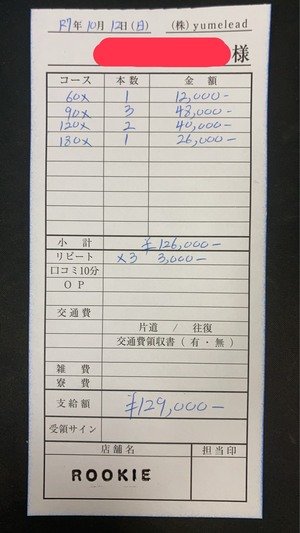 R7年 10月 12日(日) (株) yumelead
様
コース 本数 金額
60× 1 12,000-
90× 3 48,000-
120× 2 40,000-
180× 1 26,000-
小計 ¥126,000-
リピート ×3 3,000-
口コミ10分
OP
交通費
片道 / 往復
交通費領収書(有・無)
雑費
寮費
支給額 ¥129,000-
受領サイン
店舗名 担当印
ROOKIE